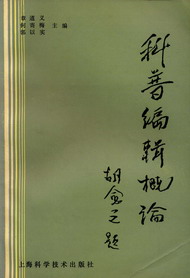 章道义
何寄梅 主编
郭以实
科普编辑概论
胡愈之题
上海科学技术出版社